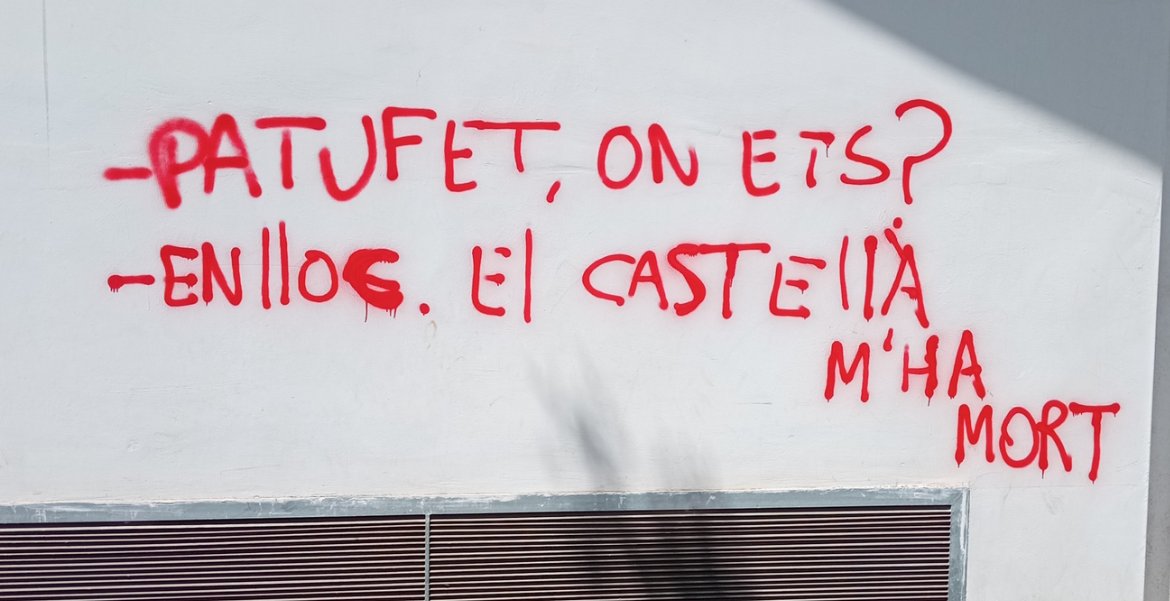 -PATUFET, ON ETS?
-ENlloc. El CASTEllÀ
M'HA
MORT